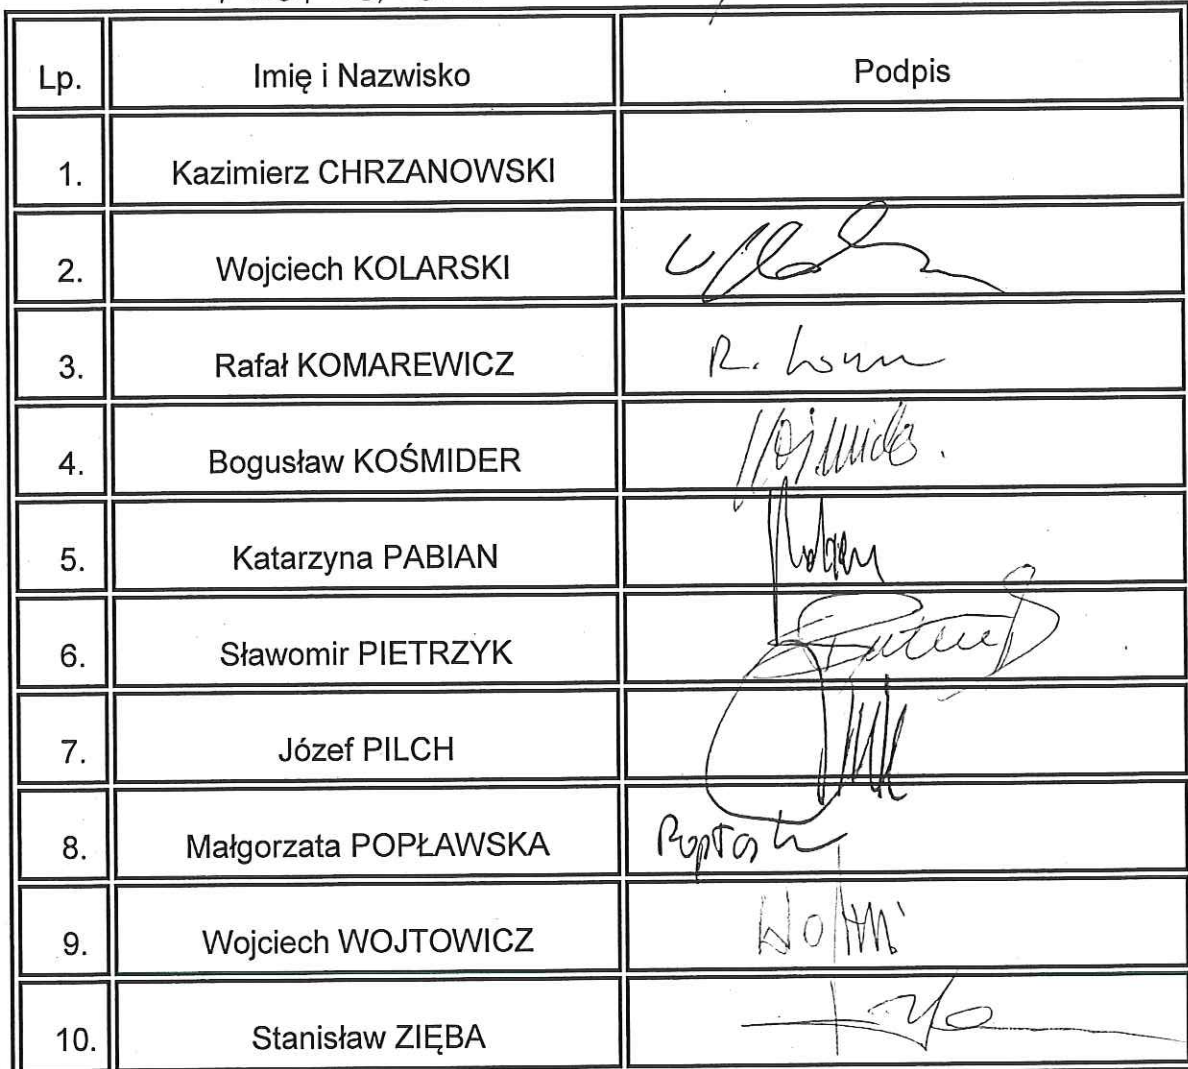 Lp. Imię i Nazwisko Podpis
1. Kazimierz CHRZANOWSKI
2. Wojciech KOLARSKI
3. Rafał KOMAREWICZ R.
4. Bogusław KOŚMIDER
5. Katarzyna PABIAN
6. Sławomir PIETRZYK
7. Józef PILCH
8. Małgorzata POPŁAWSKA
9. Wojciech WOJTOWICZ
10. Stanisław ZIĘBA